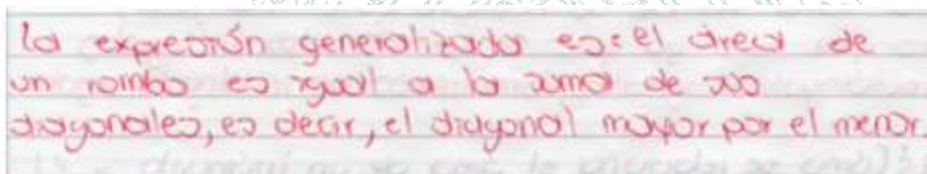 la expresión generalizada es: el area de
un rombo es igual a la suma de sus
diagonales, es decir, el diagonal mayor por el menor.